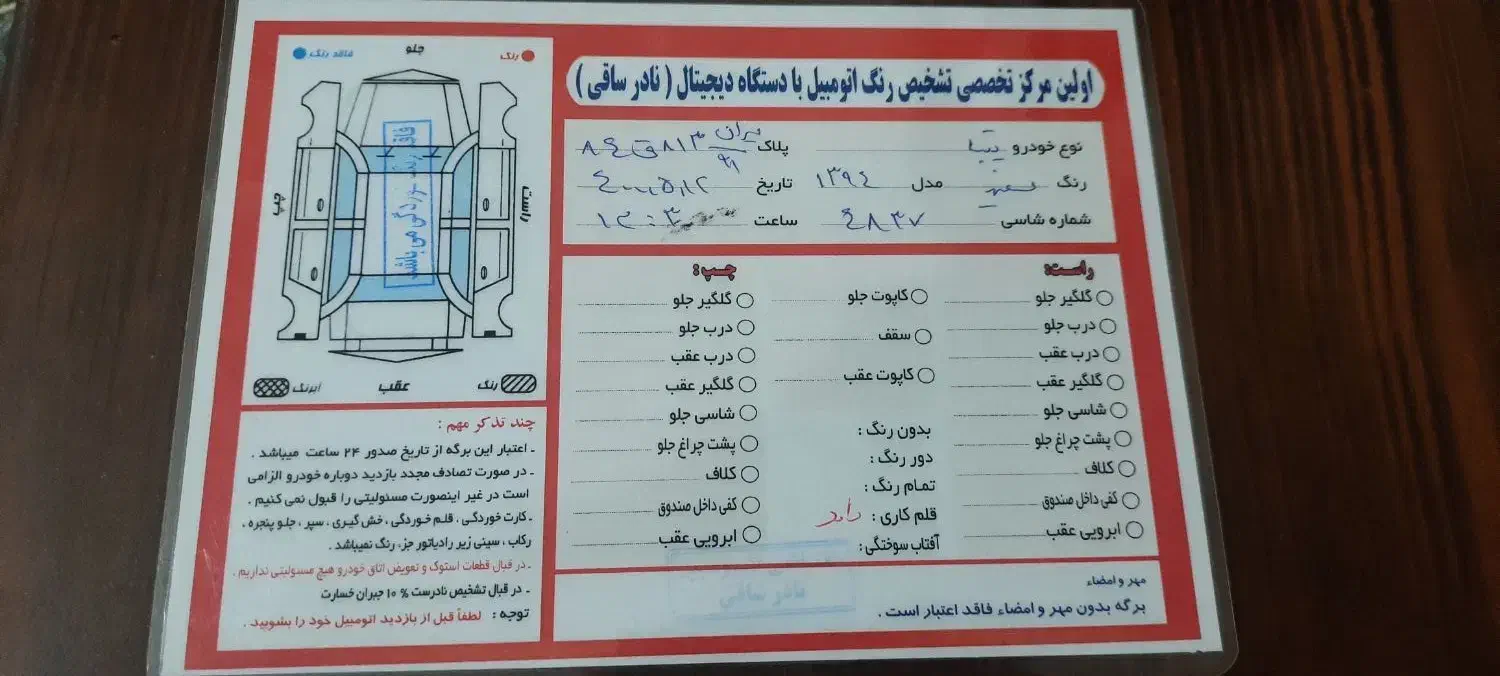 اولین مرکز تخصصی تشخیص رنگ اتومبیل با دستگاه دیجیتال ( نادر ساقی )
نوع خودرو تیبا پلاک ایران ۹۱ ۸۱۳ ق ۸۴
رنگ سفید مدل ۱۳۹۴ تاریخ
شماره شاسی ۴۸۳۷ ساعت ۱۲:۳۰
راست:
گلگیر جلو
درب جلو
درب عقب
گلگیر عقب
شاسی جلو
پشت چراغ جلو
کلاف
کفی داخل صندوق
ابرویی عقب
کاپوت جلو
سقف
کاپوت عقب
بدون رنگ :
دور رنگ :
تمام رنگ :
قلم کاری : دارد
آفتاب سوختگی :
چپ :
گلگیر جلو
درب جلو
درب عقب
گلگیر عقب
شاسی جلو
پشت چراغ جلو
کلاف
کفی داخل صندوق
ابرویی عقب
مهر و امضاء
برگه بدون مهر و امضاء فاقد اعتبار است .
نادر ساقی
رنگ
جلو
فاقد رنگ
راست
چپ
فاقد رنگ خوردگی می باشد
رنگ
عقب
آبرنگ
چند تذکر مهم :
- اعتبار این برگه از تاریخ صدور ۲۴ ساعت میباشد .
- در صورت تصادف مجدد بازدید دوباره خودرو الزامی
است در غیر اینصورت مسئولیتی را قبول نمی کنیم .
- کارت خوردگی ، قلم خوردگی ، خش گیری ، سپر ، جلو پنجره ،
رکاب ، سینی زیر رادیاتور جز، رنگ نمیباشد .
- در قبال قطعات استوک و تعویض اتاق خودرو هیچ مسئولیتی نداریم .
- در قبال تشخیص نادرست % ۱۰ جبران خسارت
توجه : لطفاً قبل از بازدید اتومبیل خود را بشویید .